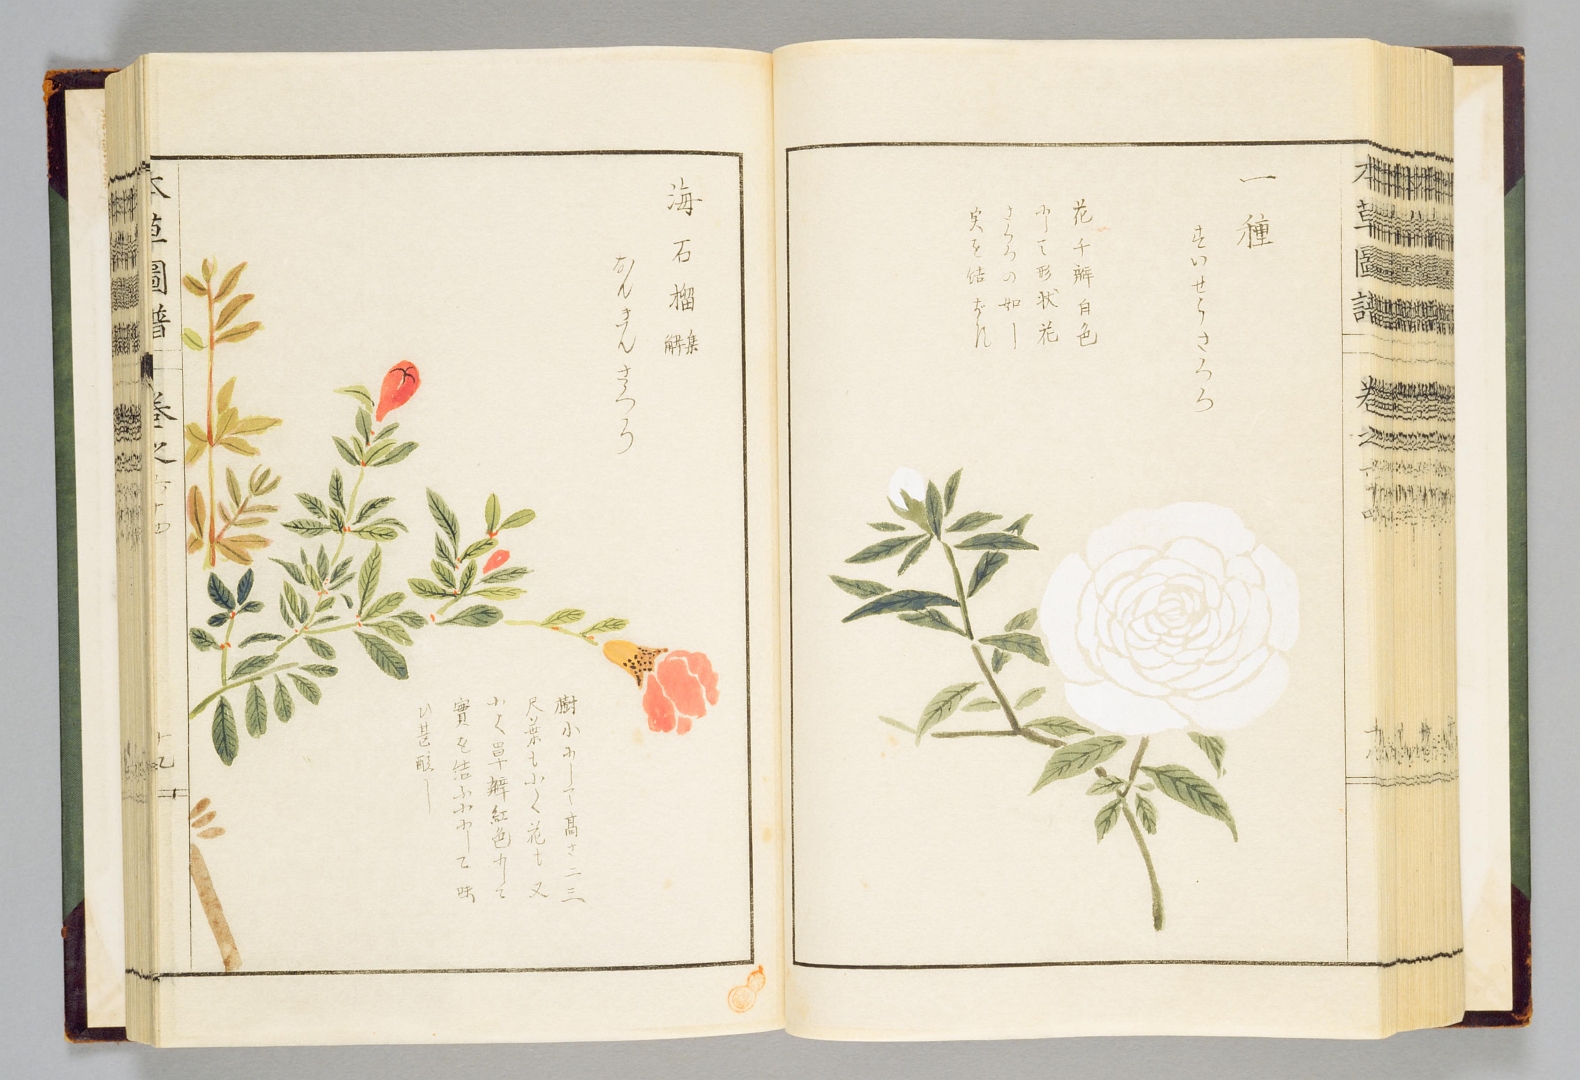 一種
すいせうざくろ
花千瓣白色
にして形状花
ざくろの如し
実を結ばず
本草圖譜 卷之六十四
海石榴 集解
なんきんざくろ
樹小にして高さ二三
尺葉も小く花も又
小く單瓣紅色にして
實を結ぶ小にして味
ひ甚酸し
本草圖譜 卷之六十四 十九